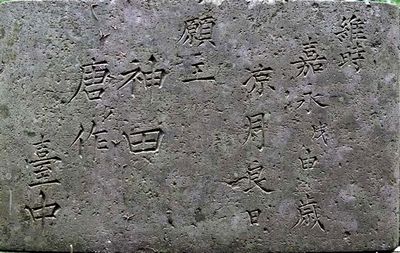 維時
嘉永戊申歳
凉月良日
願主
神田
唐作
臺中